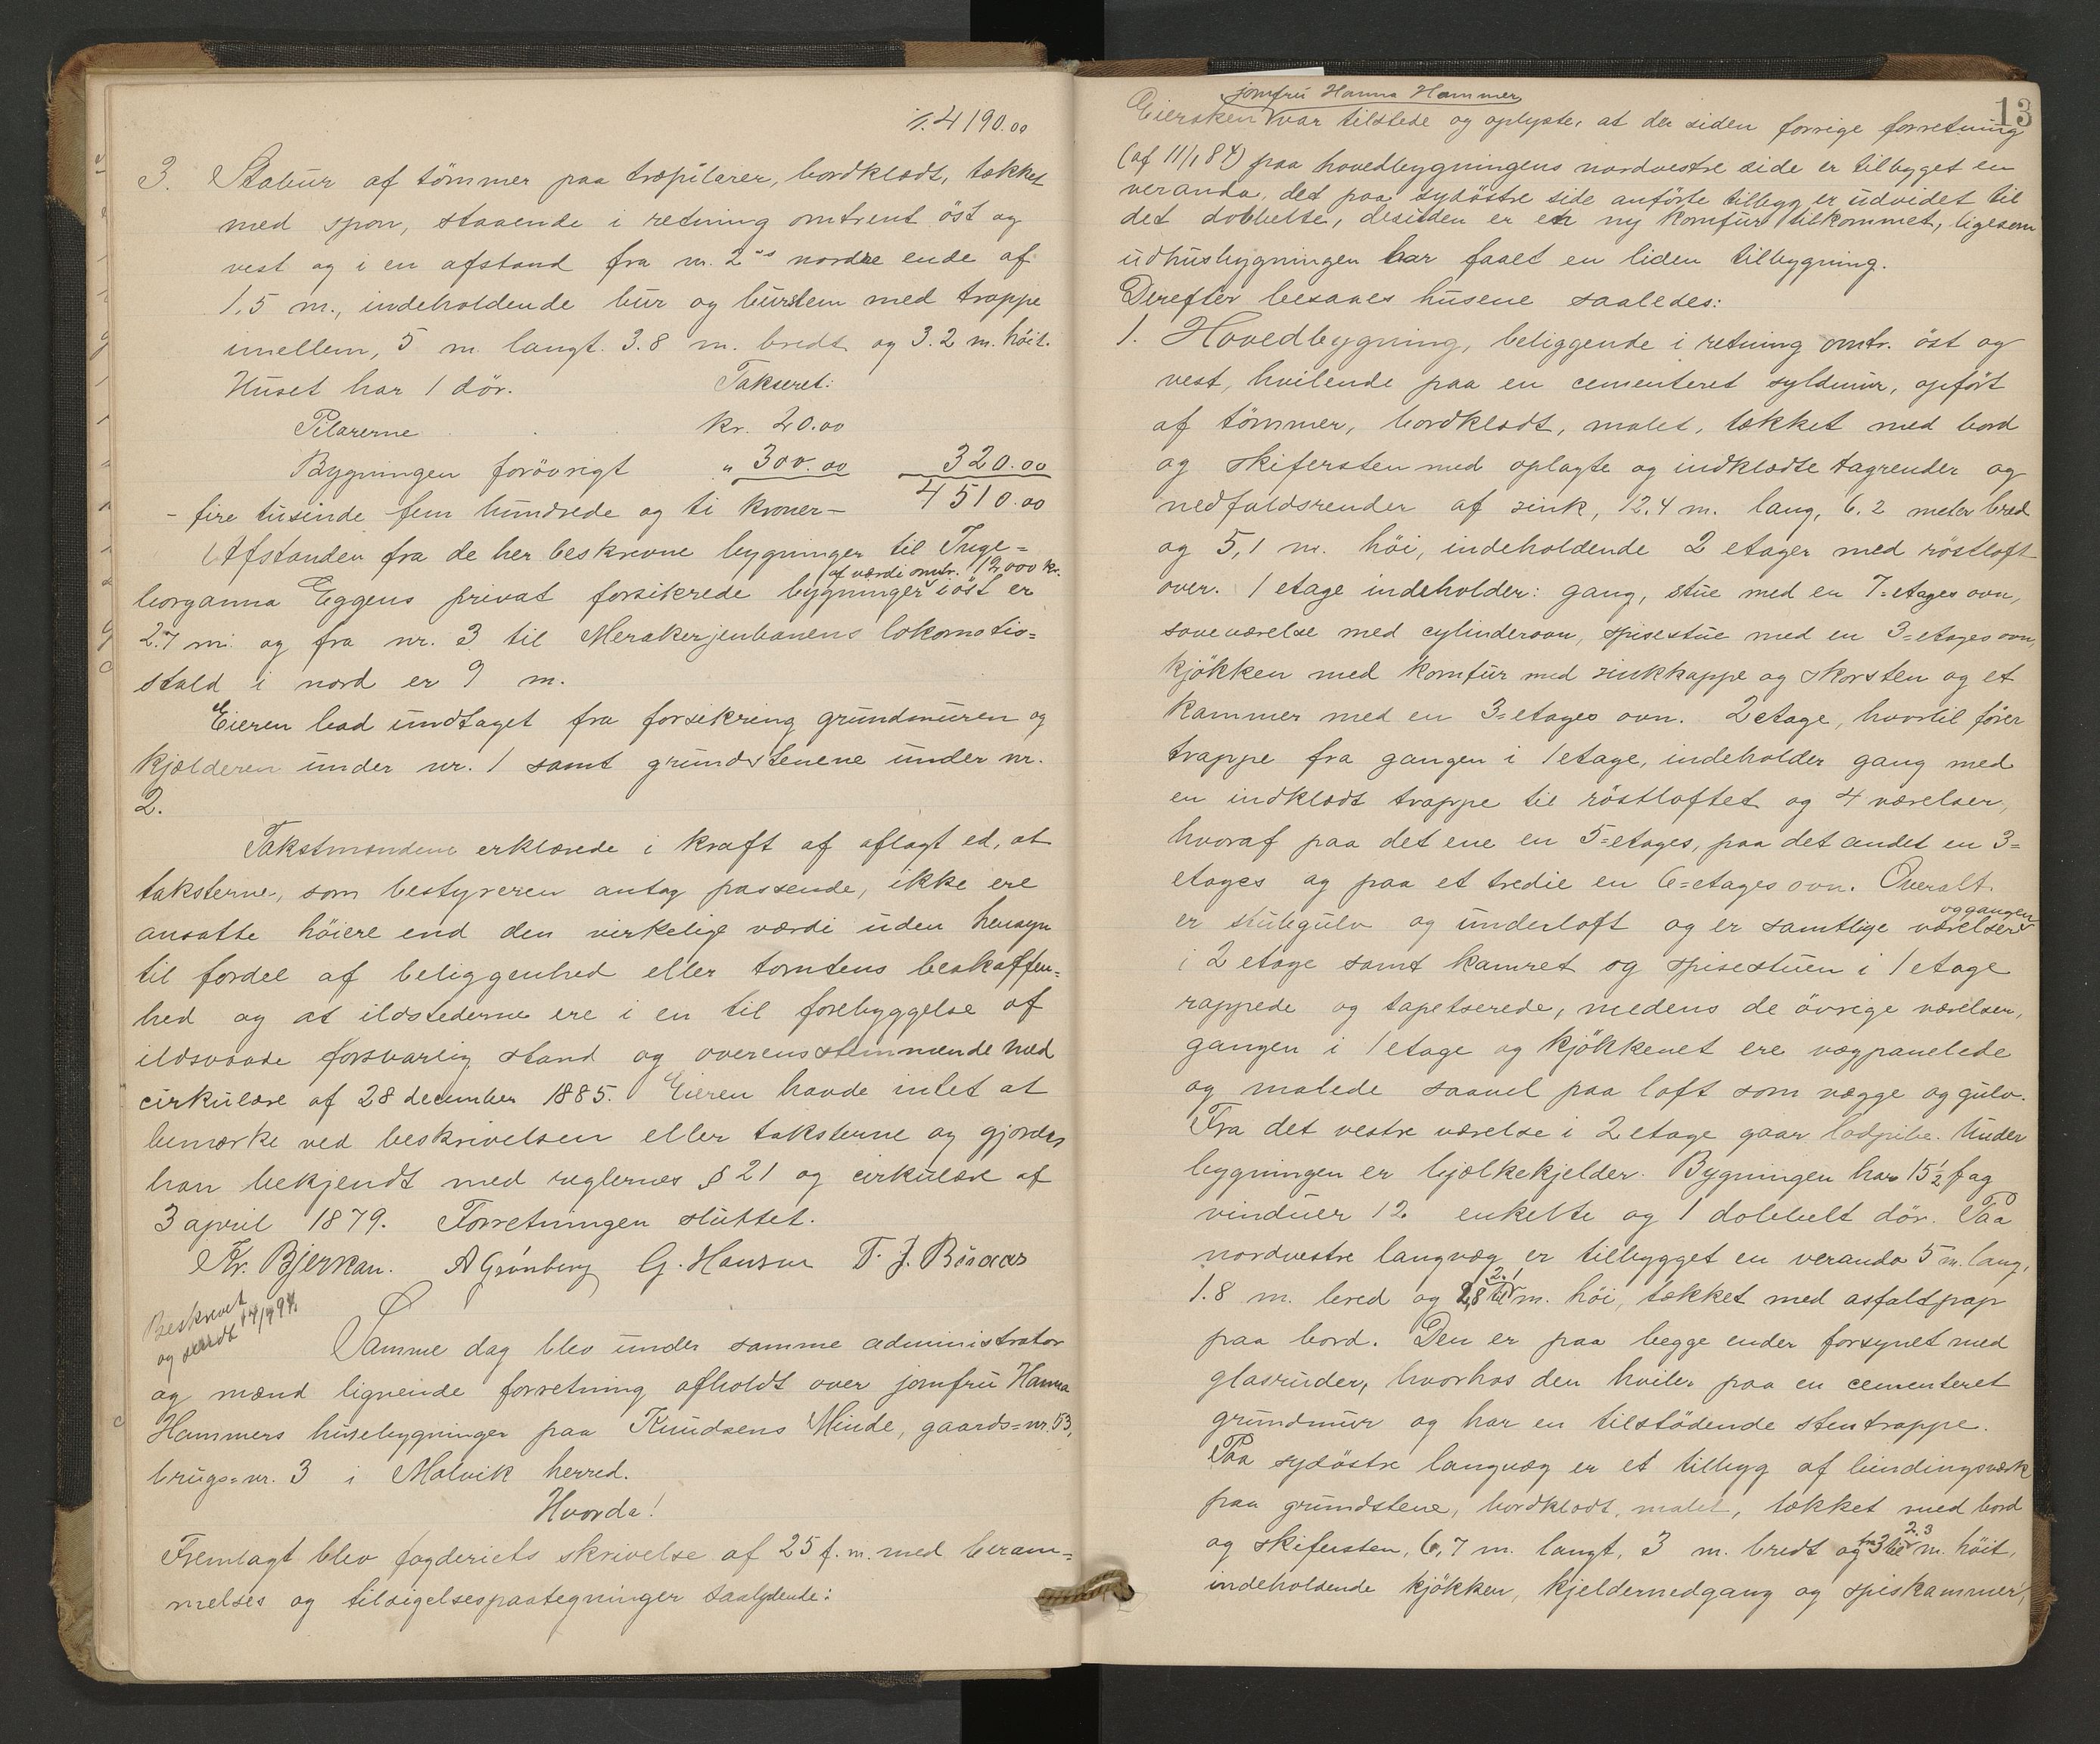 t. 4190.00
3. Stabur af tömmer paa træpilarer, bordklædt, tækket
med spon, staaende i retning omtrent öst og
vest og i en afstand fra nr. 2's nordre ende af
1,5 m., indeholdende bur og burslem med trappe
imellem, 5 m. langt. 3.8 m. bredt og 3.2 m. höit.
Huset har 1 dör. Takseret:
Pilarerne kr. 20.00
Bygningen forövrigt " 300.00 320.00
- fire tusinde fem hundrede og ti kroner - 4510.00
Afstanden fra de her beskrevne bygninger til Inge=
af værdi omtr. 12000 kr.
borganna Eggens privat forsikrede bygninger i öst er
2.7 m. og fra nr. 3 til Merakerjenbanens lokomotiv=
stald i nord er 9 m.
Eieren bad undtaget fra forsikring grundmuren og
kjælderen under nr. 1 samt grundstenene under nr.
2.
Takstmændene erklærede i kraft af aflagt ed, at
taksterne, som bestyreren antog passende, ikke ere
ansatte höiere end den virkelige værdi uden hensyn
til fordel af beliggenhed eller tomtens beskaffen=
hed og at ildstederne ere i en til forebyggelse af
ildsvaade forsvarlig stand og overensstemmende med
cirkulære af 28 december 1885. Eieren havde intet at
bemærke ved beskrivelsen eller taksterne og gjordes
han bekjendt med reglernes § 21 og cirkulære af
3 april 1879. Forretningen sluttet.
Kr. Bjerkan. A Grönberg G. Hansen T. J. Buaas
Beskrevet
og sendt 14/7 94.
Samme dag blev under samme administrator
og mænd lignende forretning afholdt over jomfru Hanna
Hammers husebygninger paa Knudsens Minde, gaards=nr. 53,
brugs=nr. 3 i Malvik herred.
Hvorda!
Fremlagt blev fogderiets skrivelse af 25 f. m. med beram=
melses og tilsigelsespaategninger saalydende:
13
jomfru Hanna Hammer
Eiersken var tilstede og oplyste, at der siden forrige forretning
(af 11/1 84) paa hovedbygningens nordvestre side er tilbygget en
veranda, det paa sydöstre side anförte tilbygg er udvidet til
det dobbelte, desuden er en ny komfur tilkommet, ligesom
udhusbygningen har faaet en liden tilbygning.
Derefter besaaes husene saaledes:
1. Hovedbygning, beliggende i retning omtr. öst og
vest, hvilende paa en cementeret syldmur, opfört
af tömmer, bordklædt, malet, tækket med bord
og skifersten med oplagte og indklædte tagrender og
nedfaldsrender af sink, 12.4 m. lang, 6.2 meter bred
og 5,1 m. höi, indeholdende 2 etager med röstloft
over. 1 etage indeholder: gang, stue med en 7=etages ovn,
soveværelse med cylinderovn, spisestue med en 3=etages ovn,
kjökken med komfur med sinkkappe og skorsten og et
kammer med en 3=etages ovn. 2 etage, hvortil förer
trappe fra gangen i 1 etage, indeholder gang med
en indklædt trappe til röstloftet og 4 værelser,
hvoraf paa det ene en 5=etages, paa det andet en 3=
etages og paa et tredie en 6=etages ovn. Overalt
er stubgulv og underloft og er samtlige værelser
og gangen
i 2 etage samt kamret og spisestuen i 1 etage
rappede og tapetserede, medens de övrige værelser,
gangen i 1 etage og kjökkenet ere vægpanelede
og malede saavel paa loft som vægge og gulv.
Fra det vestre værelse i 2 etage gaar lodpibe. Under
bygningen er bjælkekjelder. Bygningen har 15½ fag
vinduer 12 enkelte og 1 dobbelt dör. Paa
nordvestre langvæg er tilbygget en veranda 5 m. lang,
1.8 m. bred og 2,8 til 2.1 m. höi, tækket med asfaltpap
paa bord. Den er paa begge ender forsynet med
glasruder, hvorhos den hviler paa en cementeret
grundmur og har en tilstödende stentrappe.
Paa sydöstre langvæg er et tilbyg af bindingsværk
paa grundstene, bordklædt, malet, tækket med bord
og skifersten, 6,7 m. langt, 3 m. bredt og fra 3 til 2.3 m. höit,
indeholdende kjökken, kjeldernedgang og spiskammer,